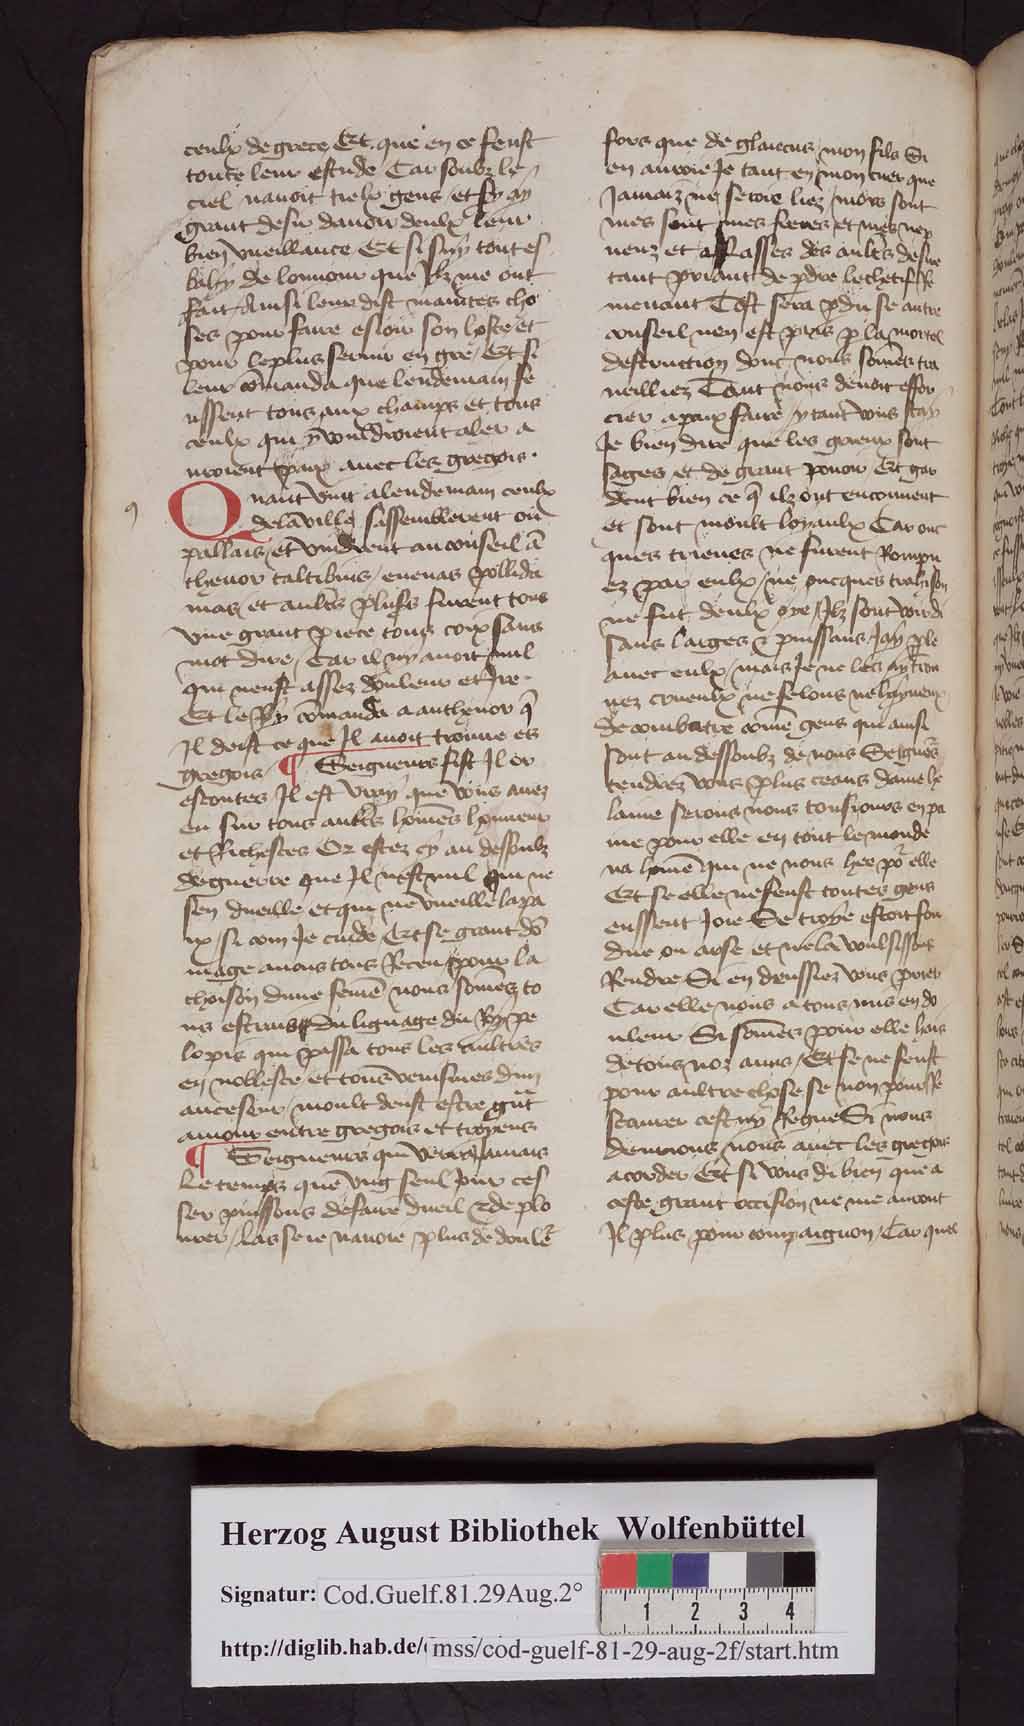 ceulx de grece Et que en ce feust
toute leur estude Car soubz le
ciel nauoit tielx gens et sy ay
grant desir dauoir deulx leur
bien vueillance Et si suy tout es
bahy de lonnour que ilz me ont
fait Ainsi leur dist maintes cho
ses pour faire esioir son hoste et
pour le plus seruir en gre Et si
leur cõmanda que lendemain fe
ussent tous aux champs et tous
ceulx qui y vouldroient aler a
uroient paix auec les gregois.
Quant vint a lendemain ceulx
de la ville sassemblerent ou
pallais et vindrent au conseil ã
thenor taltibius eneuas pollida
mas et aultrs plusrs furent tous
vne grant piece tous coix sans
mot dire Car il ny auoit nul
qui neust assez douleur et Ire.
Et le Roy cõmanda a anthenor q̃
Il deist ce que Il auoit trouue es
gregois ¶ Seigneurs fist Il or
escoutes Il est vray que vous auez
eu sur tous aultrs hom̃es honneur
et Richesces Or estez cy au dessoubz
de guerre que Il nest nul qui ne
sen dueille et qui ne vueille la pa
ix si com Je cuide Et se grant dõ
mage auons tous Receu pour la
choison dune fem̃e nous som̃ez to
us estraus du lignage du Roy pe
lopis qui passa tous les aultres
en noblesce et tous venismes dun
ancesseur moult deust estre grãt
amour entre gregois et troyens
¶ Seigneurs qui verra Jamais
le temps que vng seul Jour ces
ser puissons de faire dueil & de plo
urer las se ie nauoie plus de doulr
fors que de glaucus mon filz Si
en auroie Je tant en mon cuer que
Jamaiz ne seroie liez mors sont
mes sont mes freres et mes nep
ueuz et assasses des aultrs desire
tant priant de p̱dre le chetif Re
menant Tost sera p̱du se autre
conseil nen est pris p̱ la mortel
destruction dont nous som̃es tra
ueilliez Tant nous deuoit effor
cier a paix faire y tant vous say
Je bien dire que les grieux sont
sages et de grant pouoir Et gar
dent bien ce q̃ ilz ont enconuent
et sont moult loyaulx Car onc
ques trieues ne furent Rompu
ez par eulx ne oncques trahison
ne fut deulx oye Ilz sont cordi
sans larges & puissans Jay p̱le
auec eulx mais Je ne les ay trou
uez crueulx ne felons ne hayneux
de combatre com̃e gens qui ainsi
sont au dessoubz de nous Seignrs
tendrez vous plus ceans dame he
laine serons nous tousiours en pa
ine pour elle en tout le monde
na hom̃e qui ne nous hee por elle
Et se elle ne feust toutes gens
eussent Joie Se troye estoit fon
due ou arse et ne la voulsissons
Rendre Si en deussiez vous prier
Car elle nous a tous mis en do
uleur Si som̃es pour elle hais
de tous noz amis Et se ne feust
pour aultre chose se non pour Re
scouurer cest Regne Si nous
deurions nous auec les gregois
acorder Et si vous di bien que a
ceste grant occision ne me auront
Il plus pour compaignon Car quel
Herzog August Bibliothek Wolfenbüttel
Signatur: Cod.Guelf.81.29Aug.2°
http://diglib.hab.de/mss/cod-guelf-81-29-aug-2f/start.htm
1 2 3 4